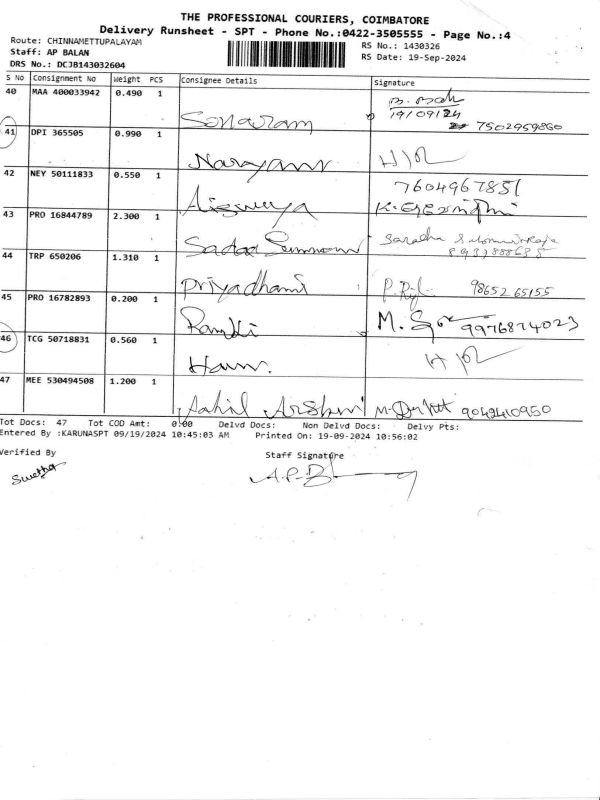 THE PROFESSIONAL COURIERS, COIMBATORE
Delivery Runsheet - SPT - Phone No.:0422-3505555 - Page No.:4
Route: CHINNAMETTUPALAYAM
RS No.: 1430326
Staff: AP BALAN
RS Date: 19-Sep-2024
DRS No.: DCJB143032604
S No Consignment No Weight PCS Consignee Details Signature
40 MAA 400033942 0.490 1 Sonaram
19/09/24
7502959860
41 DPI 365505 0.990 1
42 NEY 50111833 0.550 1
7604967851
43 PRO 16844789 2.300 1
44 TRP 650206 1.310 1 Priyadharsi
98652 65155
45 PRO 16782893 0.200 1
M.
9976874023
46 TCG 50718831 0.560 1
47 MEE 530494508 1.200 1
9042410950
Tot Docs: 47 Tot COD Amt: 0.00 Delvd Docs: Non Delvd Docs: Delvy Pts:
Entered By :KARUNASPT 09/19/2024 10:45:03 AM Printed On: 19-09-2024 10:56:02
Verified By Staff Signature
Swetha